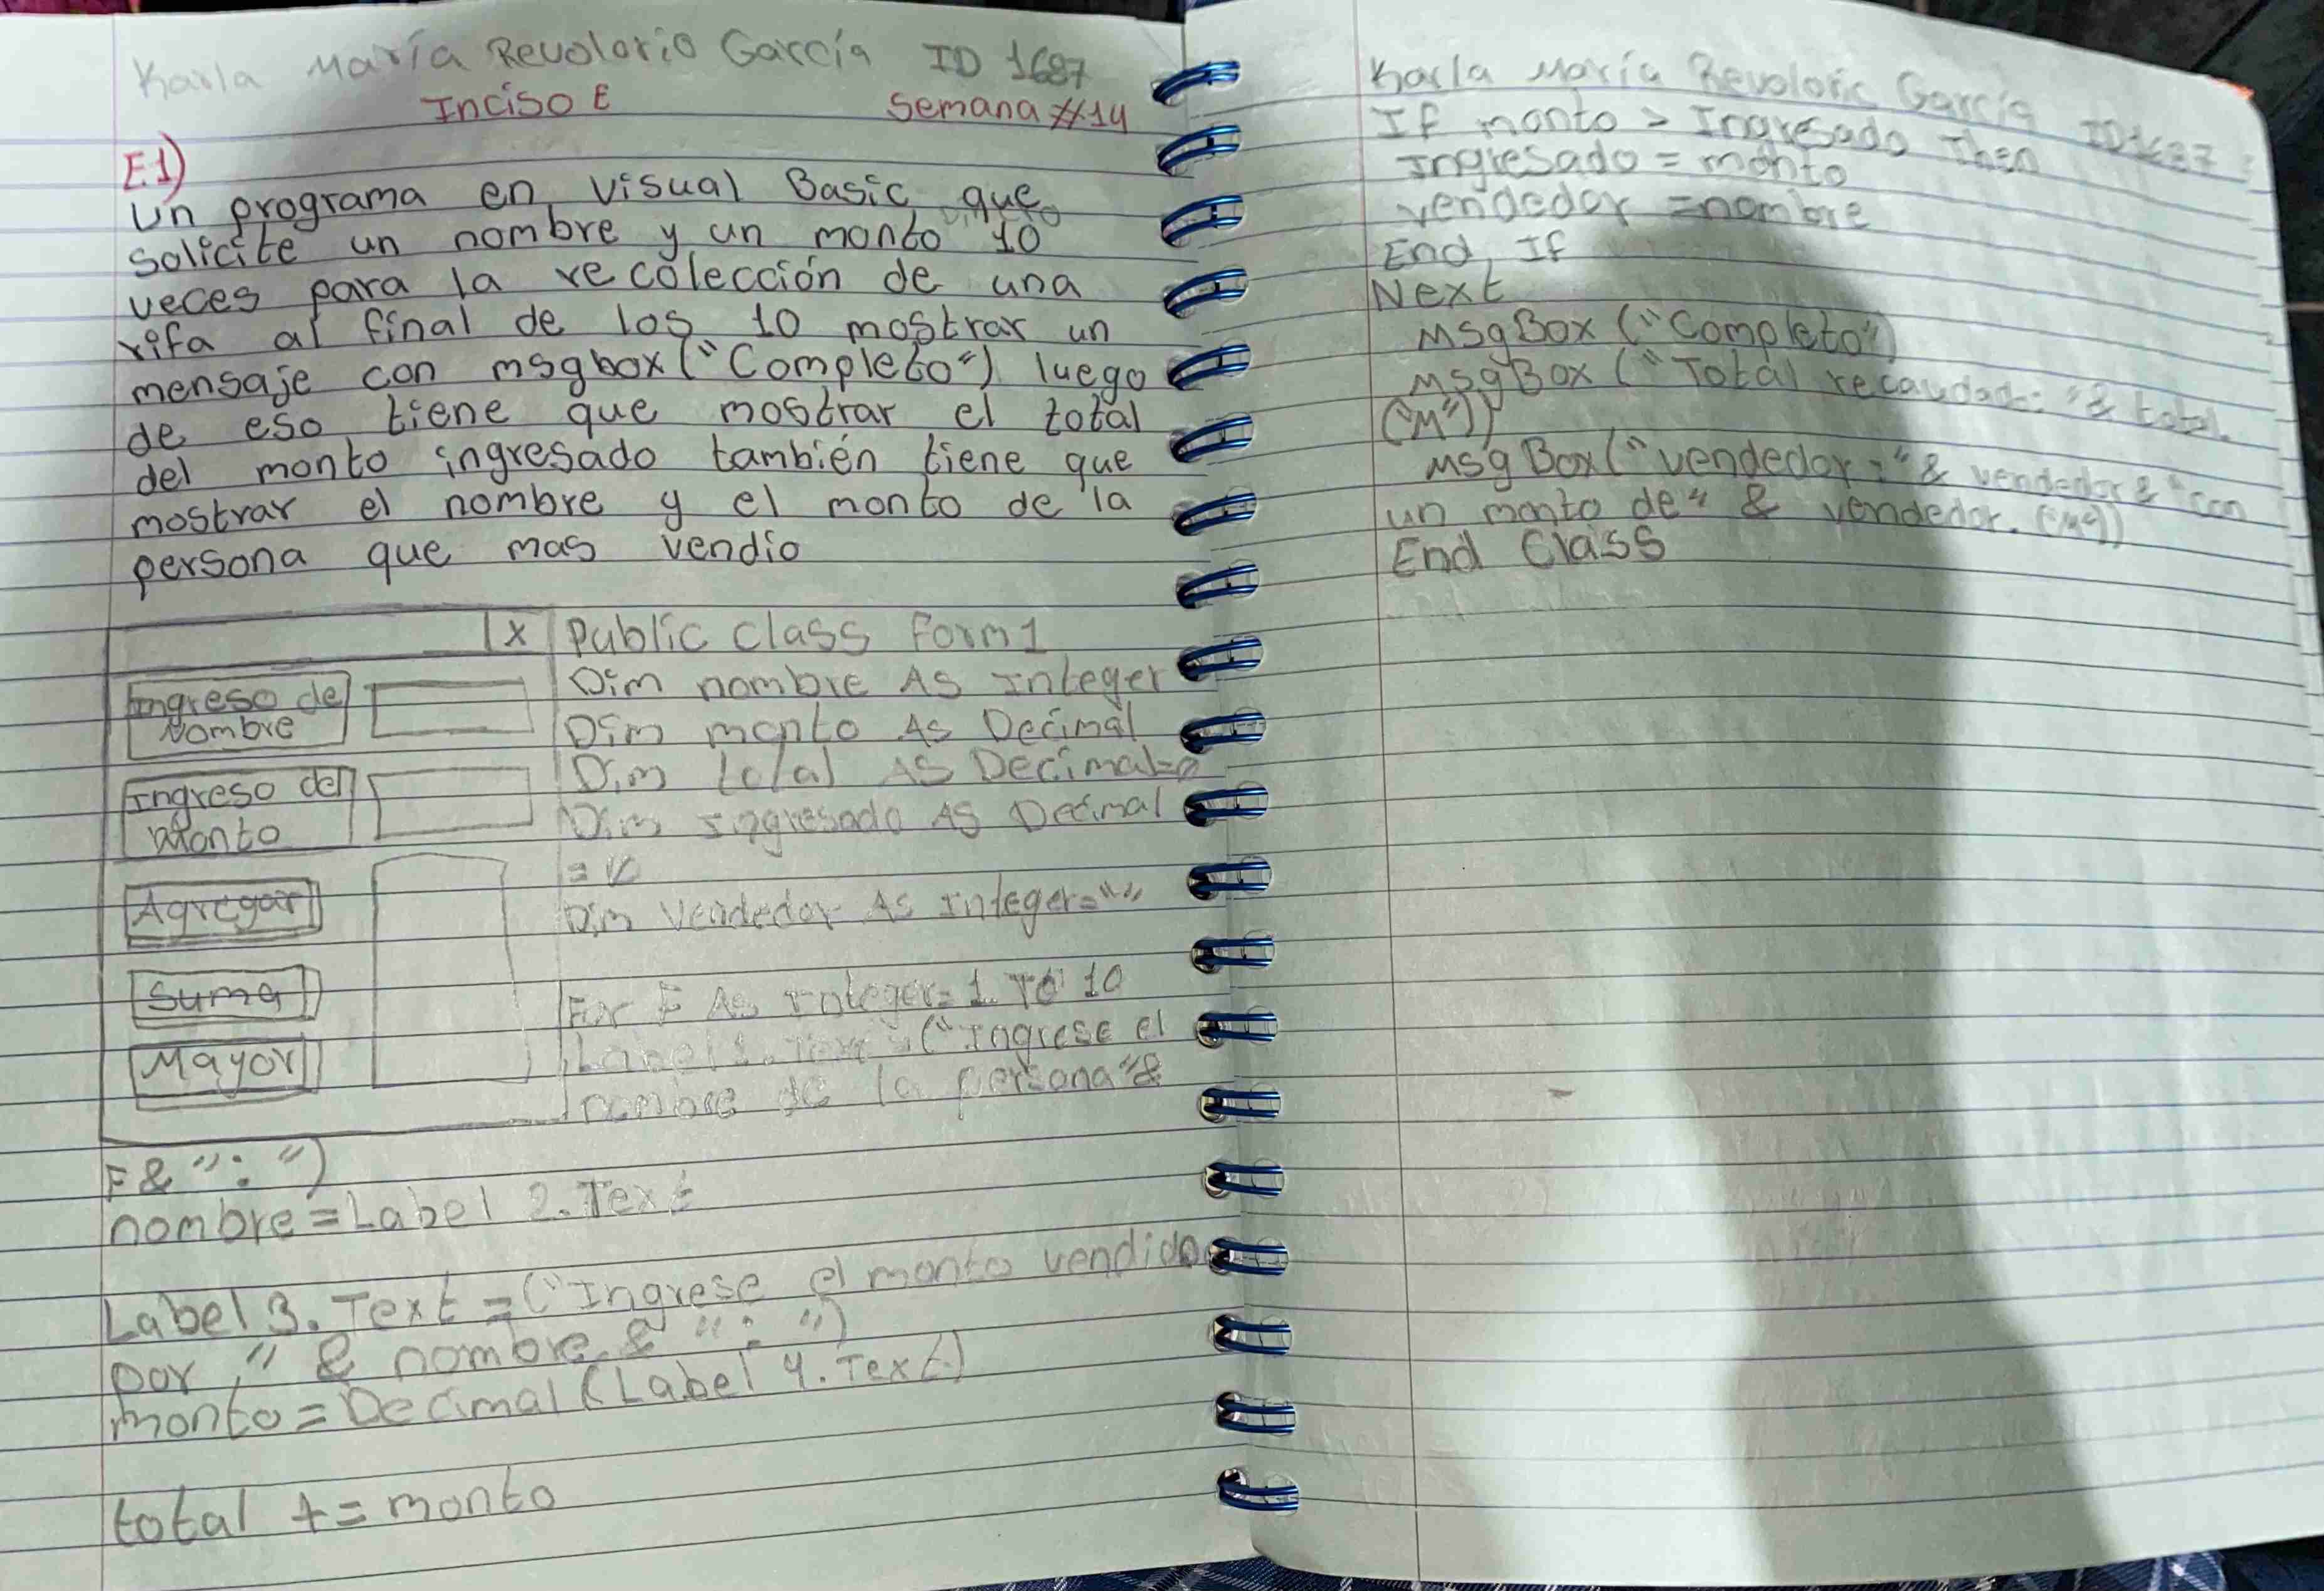 Karla María Revolorio García ID 1687
Inciso E Semana #14
E1)
Un programa en visual Basic que
solicite un nombre y un monto 10
veces para la recolección de una
rifa al final de los 10 mostrar un
mensaje con msgbox("Completo") luego
de eso tiene que mostrar el total
del monto ingresado también tiene que
mostrar el nombre y el monto de la
persona que mas vendio
x
Ingreso de
Nombre
Ingreso del
Monto
Agregar
Suma
Mayor
Public class Form1
Dim nombre As Integer
Dim monto As Decimal
Dim total As Decimal=0
Dim Ingresado As Decimal
=
Dim Vendedor As Integer=""
For F As Integer= 1 To 10
Label1.Text = ("Ingrese el
nombre de la persona"&
F& ": ")
nombre=Label 2.Text
Label 3.Text = ("Ingrese el monto vendido
por " & nombre & ": ")
monto=Decimal (Label 4.Text)
total += monto
Karla María Revolorio García ID1687
If monto > Ingresado Then
Ingresado = monto
vendedor =nombre
End If
Next
MsgBox ("Completo")
MsgBox ("Total recaudado: "& total.
("M"))
Msg Box("vendedor: "& vendedor & "con
un monto de" & vendedor. ("M"))
End Class